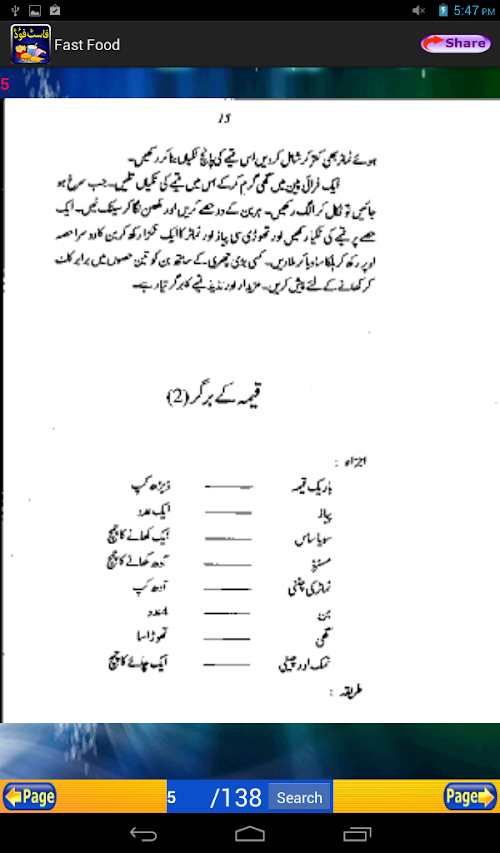 5:47 PM
فاسٹ فوڈ
Fast Food
Share
5
15
ہوئے ٹماٹر بھی کتر کر شامل کر دیں اس قیمے کی پانچ ٹکیاں بنا کر رکھیں۔
ایک فرائی پین میں گھی گرم کر کے اس میں قیمے کی ٹکیاں تلیں۔ جب سرخ ہو
جائیں تو نکال کر الگ رکھیں۔ ہر بن کے دو حصے کریں اور مکھن لگا کر سینک لیں۔ ایک
حصے پر قیمے کی ٹکیا رکھیں اور تھوڑی سی پیاز اور ٹماٹر کا ایک ٹکڑا رکھ کر بن کا دوسرا حصہ
اوپر رکھ کر ہلکا سا دبا کر ملا دیں۔ کسی بڑی چھری کے ساتھ بن کو تین حصوں میں برابر کاٹ
کر کھانے کے لئے پیش کریں۔ مزیدار اور لذیذ قیمے کا برگر تیار ہے۔
قیمہ کے برگر (2)
اجزاء :
باریک قیمہ ——— ڈیڑھ کپ
پیاز ——— ایک عدد
سویا ساس ——— ایک کھانے کا چمچ
مسٹرڈ ——— آدھ کھانے کا چمچ
ٹماٹر کی چٹنی ——— آدھ کپ
بن ——— 4 عدد
گھی ——— تھوڑا سا
نمک اور چینی ——— ایک چائے کا چمچ
طریقہ :
Page
5 /138 Search
Page